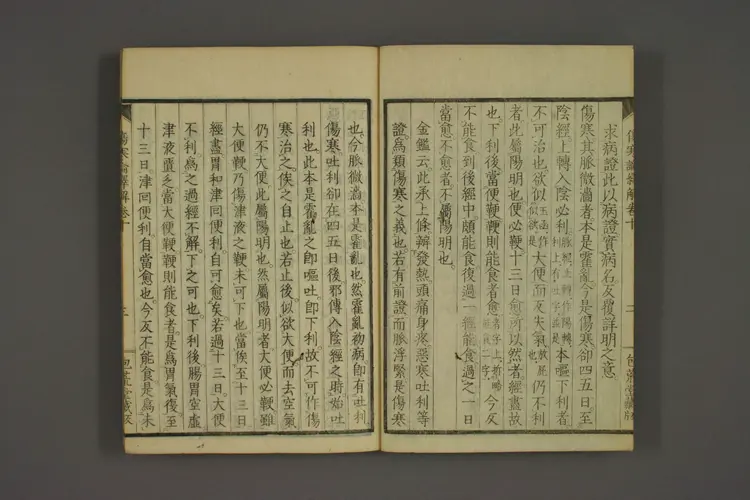 求病證此以病證實病名反復詳明之意
傷寒其脈微濇者本是霍亂今是傷寒卻四五日至
陰經上轉入陰必利本嘔下利者
不可治也欲似大便而反失氣仍不利
者此屬陽明也便必鞕十三日愈所以然者經盡故
也下利後當便鞕鞕則能食者愈今反
不能食到後經中頗能食復過一經能食過之一日
當愈不愈者不屬陽明也
金鑑云此承上條辨發熱頭痛身疼惡寒吐利等
證為類傷寒之義也若有前證而脈浮緊是傷寒
也今脈微濇本是霍亂也然霍亂初病即有吐利
傷寒吐利卻在四五日後邪傳入陰經之時始吐
利也此本是霍亂之即嘔吐即下利故不可作傷
寒治之俟之自止也若止後似欲大便而去空氣
仍不大便此屬陽明也然屬陽明者大便必鞕雖
大便鞕乃傷津液之鞕未可下也當俟至十三日
經盡胃和津回便利自可愈矣若過十三日大便
不利為之過經不解下之可也下利後腸胃空虛
津液匱乏當大便鞕鞕則能食者是為胃氣復至
十三日津回便利自當愈也今反不能食是為未
傷寒論繹解卷十
三